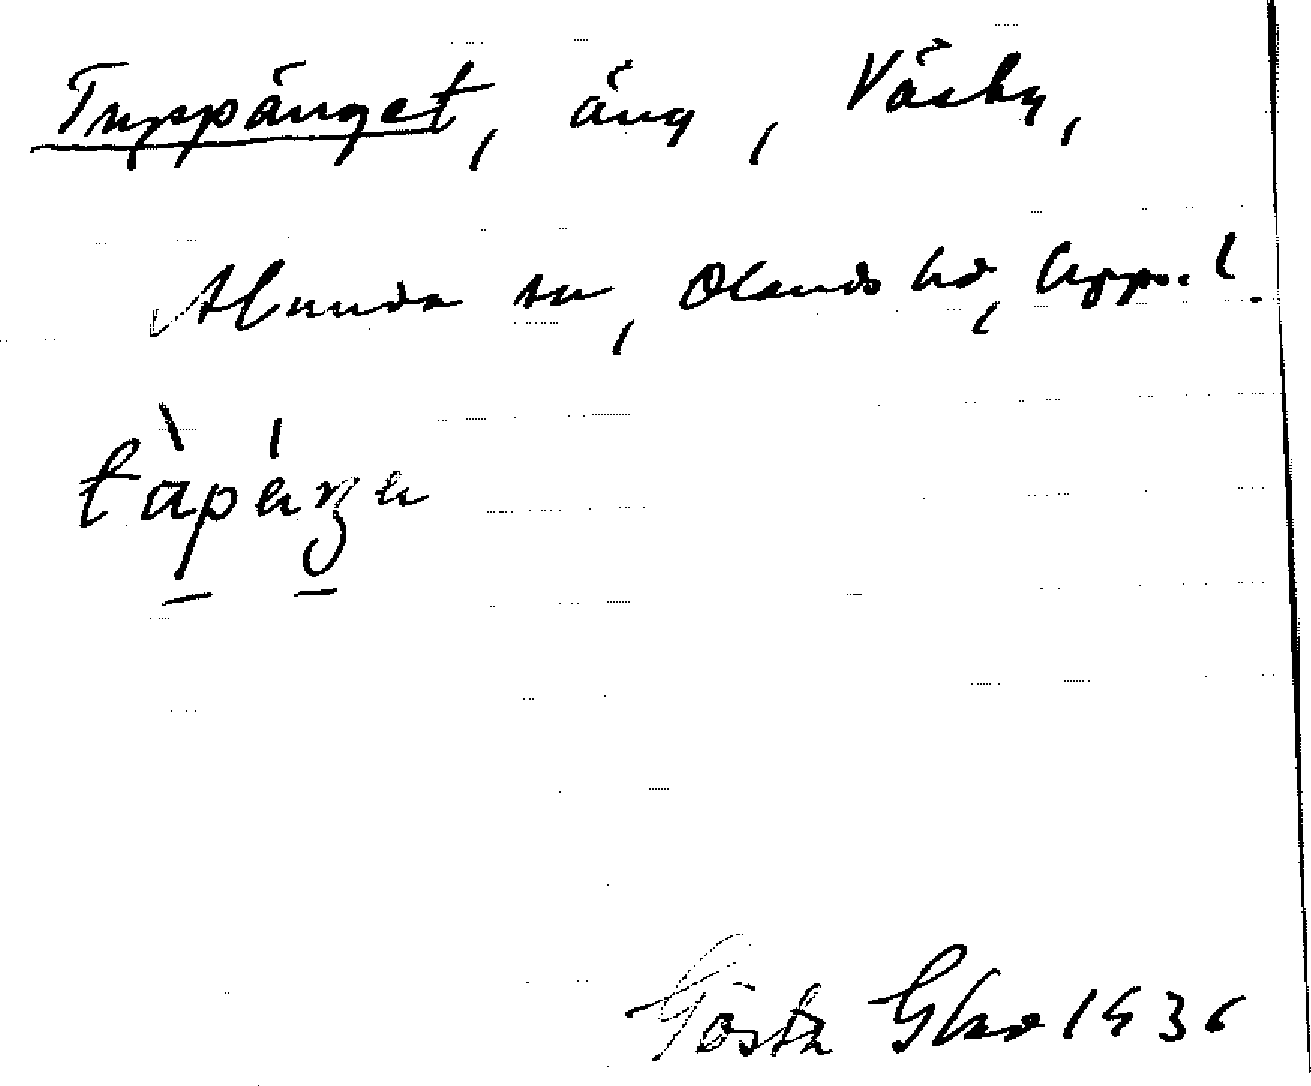 Tuppänget, äng, Väsby,
Alunda sn, Olands hd, Upps. l.
Gösta 1936